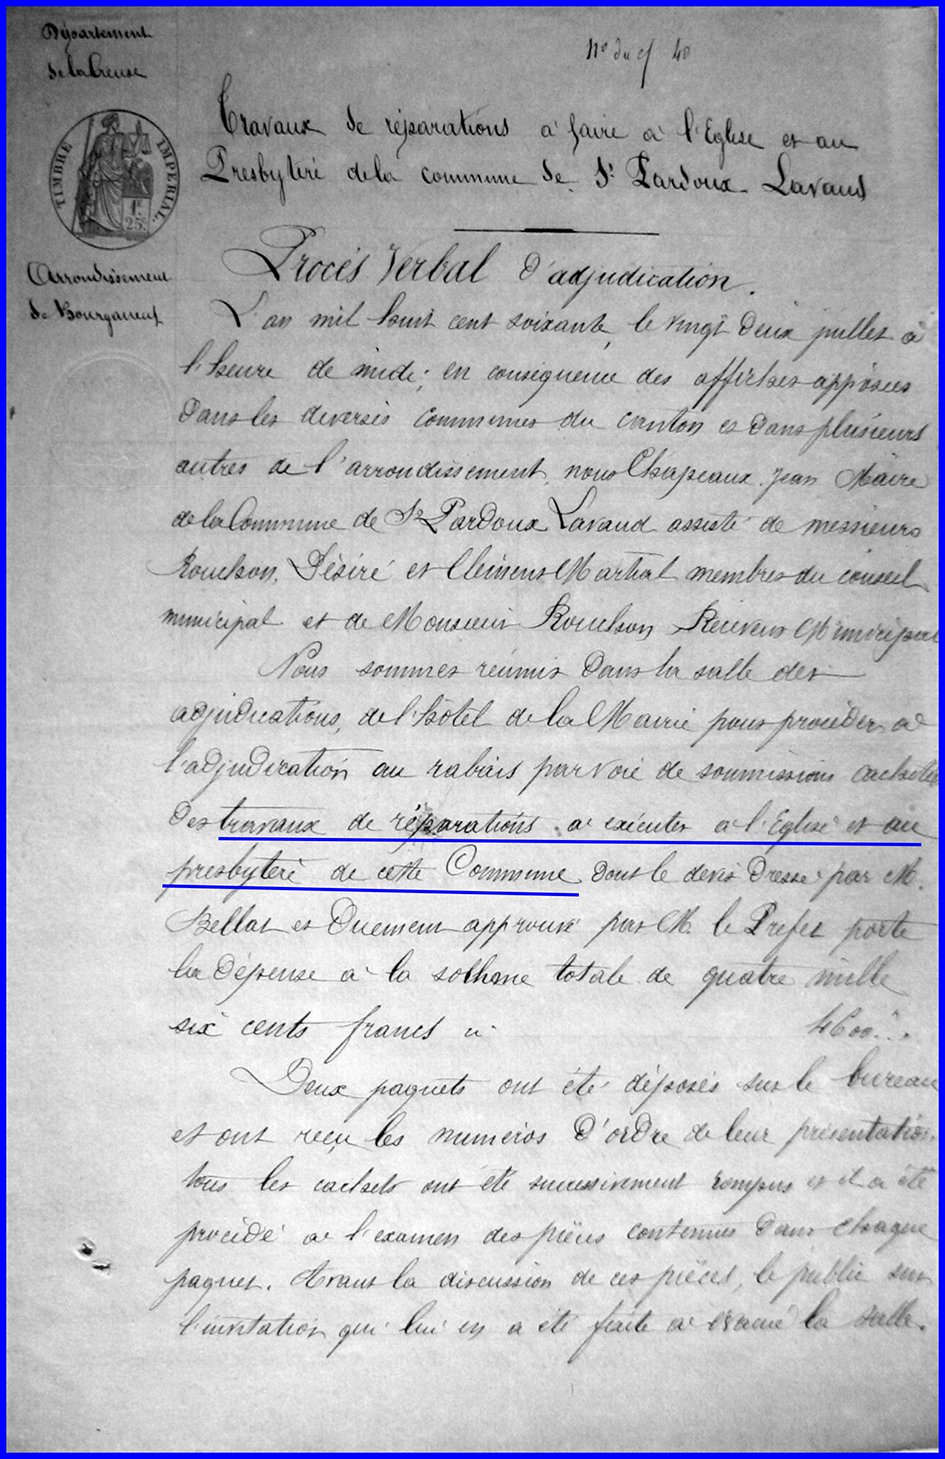 Département
de la Creuse
N° du
40
Travaux de réparations à faire à l'Eglise et au
Presbyteré de la commune de St Pardoux Lavaud
TIMBRE IMPERIAL
1f
25c
Arrondissement
de Bourganeuf
Procès Verbal d'adjudication.
L'an mil huit cent soixante, le vingt deux juillet à
l'heure de midi; en consequence des affiches apposées
dans les diverses communes du canton et dans plusieurs
autres de l'arrondissement, nous Chapeaux Jean Maire
de la Commune de St Pardoux Lavaud assisté de messieurs
Rouchon, Désiré et Clément Martial membres du conseil
municipal et de Monsieur Rouchon Receveur Municipal
Nous sommes réunis dans la salle des
adjudications, de l'hôtel de la Mairie pour procéder à
l'adjudication au rabais par voie de soumissions cachetées
des travaux de réparations à exécuter à l'Eglise et au
presbyteré de cette Commune dont le devis dressé par M.
Bellat et approuvé par M. le Prefet porte
la dépense à la somme totale de quatre mille
six cents francs ci 4600
Deux paquets ont été déposés sur le bureau
et ont reçu les numéros d'ordre de leur présentation,
tous les cachets ont été successivement rompus et il a été
procédé à l'examen des pièces contenues dans chaque
paquet. Avant la discussion de ces pièces, le public sur
l'invitation qui lui en a été faite a évacué la salle.